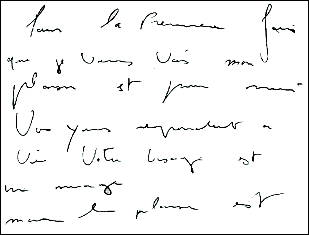 Pour la Première fois
que je vous vois mon
plaisir est pour moi
Vos yeux répondent a
Votre visage est
un
le plaisir est